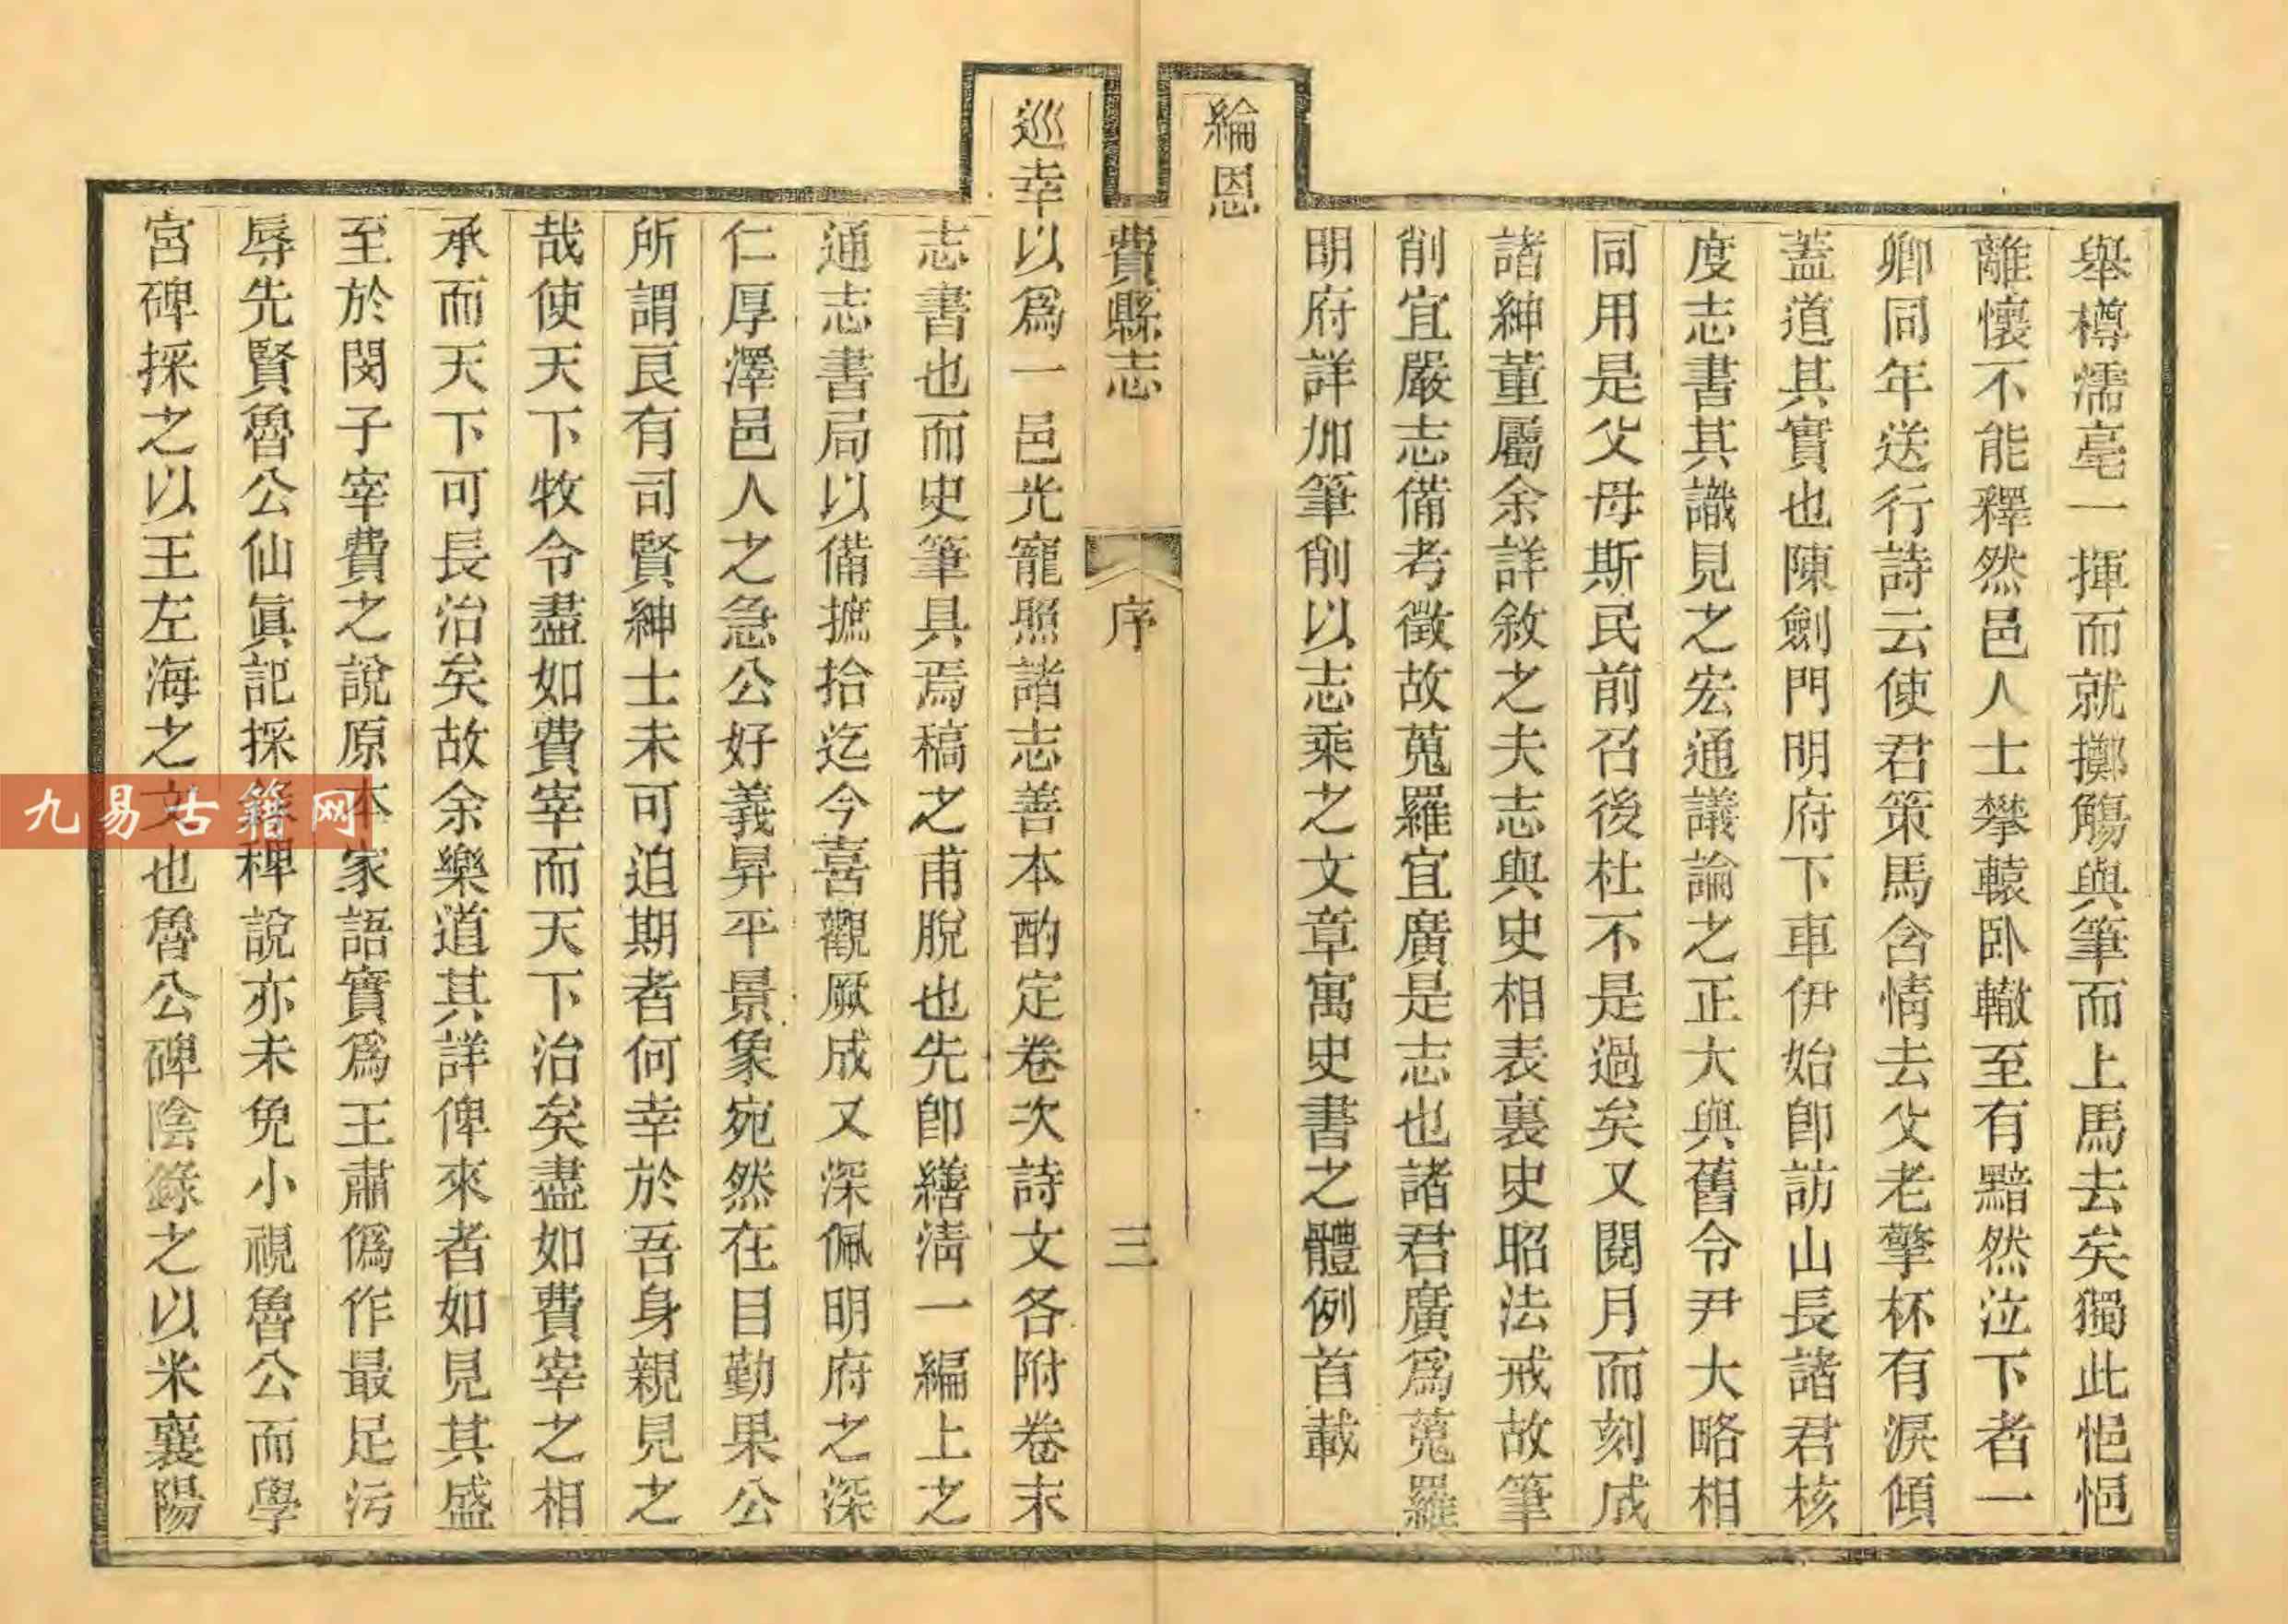 舉樽濡毫一揮而就擲觴與筆而上馬去矣獨此悒悒
離懷不能釋然邑人士攀轅卧轍至有黯然泣下者一
卿同年送行詩云使君策馬含情去父老擎杯有淚傾
蓋道其實也陳劍門明府下車伊始卽訪山長諮君核
度志書其識見之宏通議論之正大與舊令尹大略相
同用是父母斯民前召後杜不是過矣又閱月而刻成
諸紳董屬余詳敘之夫志與史相表裏史昭法戒故筆
削宜嚴志備考徵故蒐羅宜廣是志也諸君廣爲蒐羅
明府詳加筆削以志乘之文章寓史書之體例首載
綸恩
費縣志
序
三
巡幸以爲一邑光寵照諸志善本酌定卷次詩文各附卷末
志書也而史筆具焉稿之甫脫也先卽繕淸一編上之
通志書局以備摭拾迄今喜觀厥成又深佩明府之深
仁厚澤邑人之急公好義昇平景象宛然在目勤果公
所謂艮有司賢紳士未可迫期者何幸於吾身親見之
哉使天下牧令盡如費宰而天下治矣盡如費宰之相
承而天下可長治矣故余樂道其詳俾來者如見其盛
至於閔子宰費之說原本家語實爲王肅僞作最足污
辱先賢魯公仙眞記採稗說亦未免小視魯公而學
宮碑採之以王左海之文也魯公碑陰錄之以米襄陽
九易古籍网